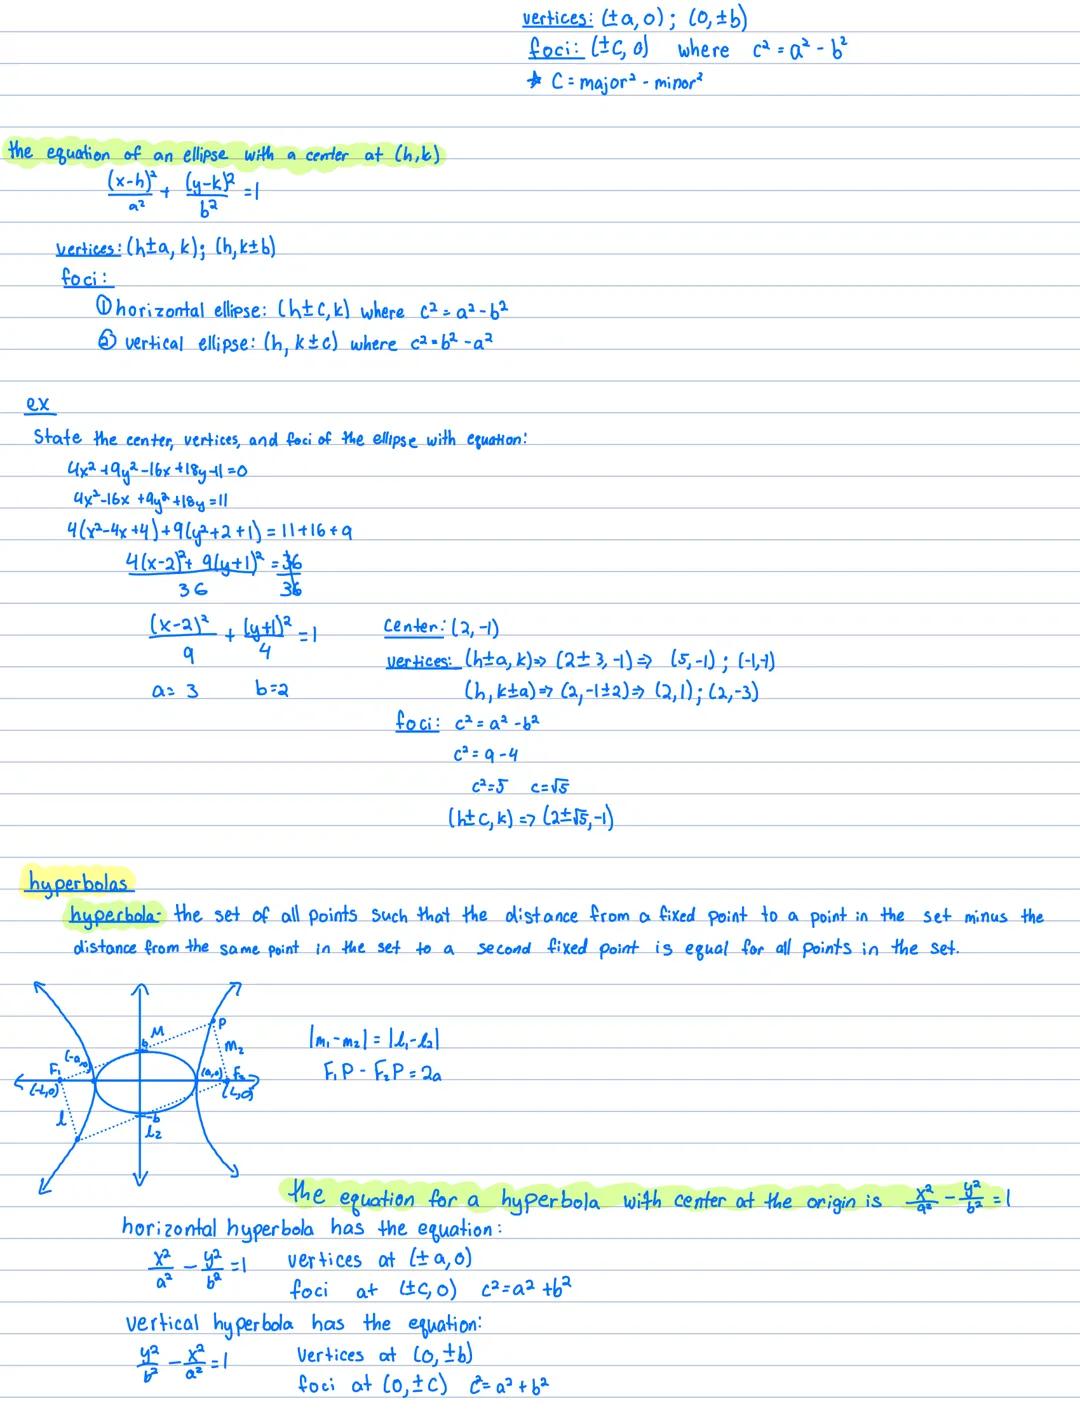 vertices: (±a,0); (0,±b)
foci: (±c,0) where c² = a² - b²
★ C = major² - minor²
the equation of an ellipse with a center at (h,k)
(x-h)²/a² + (y-k)²/b² = 1
vertices: (h±a, k); (h, k±b)
foci:
① horizontal ellipse: (h±c,k) where c² = a² - b²
② vertical ellipse: (h, k±c) where c² = b² - a²
ex
State the center, vertices, and foci of the ellipse with equation:
4x² + 9y² - 16x + 18y - 11 = 0
4x² - 16x + 9y² + 18y = 11
4(x² - 4x + 4) + 9(y² + 2 + 1) = 11 + 16 + 9
4(x-2)² + 9(y+1)² = 36
36 36
(x-2)²/9 + (y+1)²/4 = 1
a = 3 b = 2
center: (2, -1)
vertices: (h±a, k) => (2±3, -1) => (5,-1); (-1,-1)
(h, k±a) => (2, -1±2) => (2,1); (2,-3)
foci: c² = a² - b²
c² = 9 - 4
c² = 5 c = √5
(h±c, k) => (2±√5, -1)
hyperbolas
hyperbola- the set of all points such that the distance from a fixed point to a point in the set minus the
distance from the same point in the set to a second fixed point is equal for all points in the set.
M
P
b
m₂
(-a,0)
F₁
(a,0)
F₂
(-c,0)
(c,0)
l
-b
l₂
|m₁ - m₂| = |l₁ - l₂|
F₁P - F₂P = 2a
the equation for a hyperbola with center at the origin is x²/a² - y²/b² = 1
horizontal hyperbola has the equation:
x²/a² - y²/b² = 1 vertices at (±a,0)
foci at (±c,0) c² = a² + b²
vertical hyperbola has the equation:
y²/b² - x²/a² = 1 vertices at (0,±b)
foci at (0,±c) c² = a² + b²